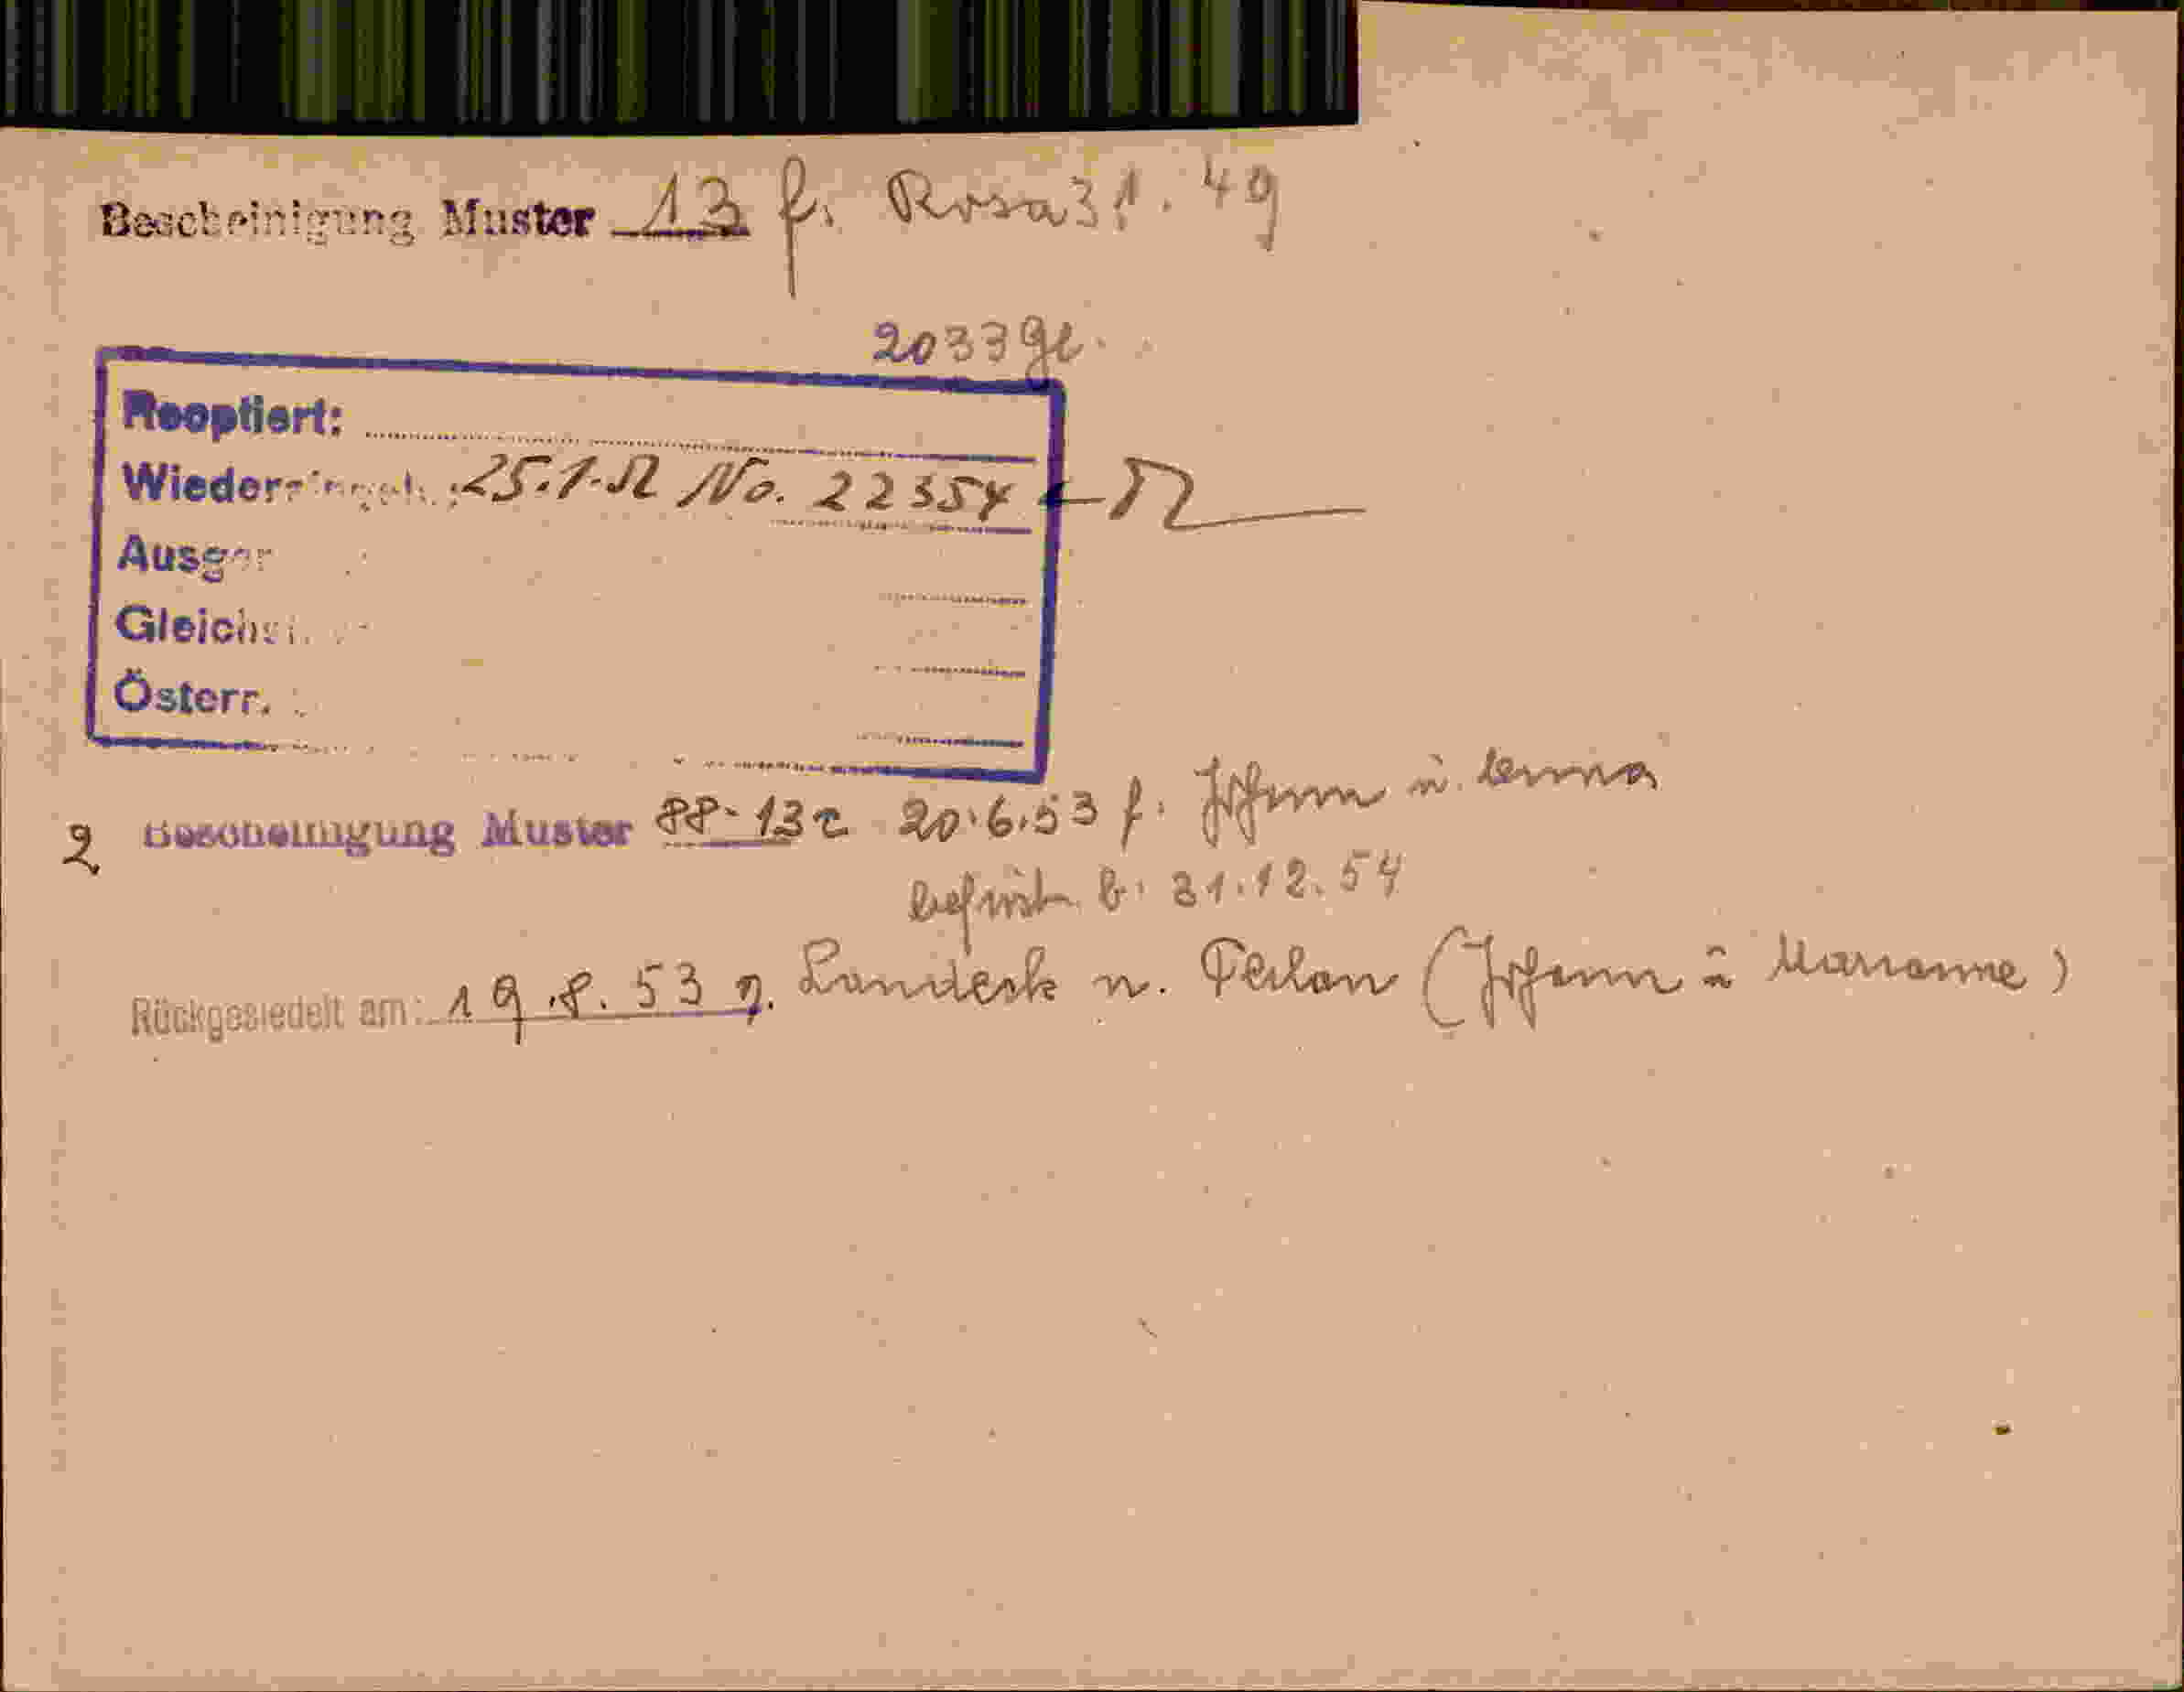 Bescheinigung Muster 13 f. Rosa 31. 49
2033 ge.
Reoptiert:
Wiedereingeb.: 25.1.52 No. 22354 - 52
Ausgew
Gleichst.
Österr.
2 Bescheinigung Muster 88-13c 20.6.53 f. Johann u. Anna
befrist. b. 31.12.54
Rückgesiedelt am: 19.8.53 v. Landeck n. Terlan (Johann u Marianne)